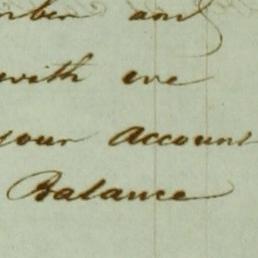 nber and
with
your account
Balance